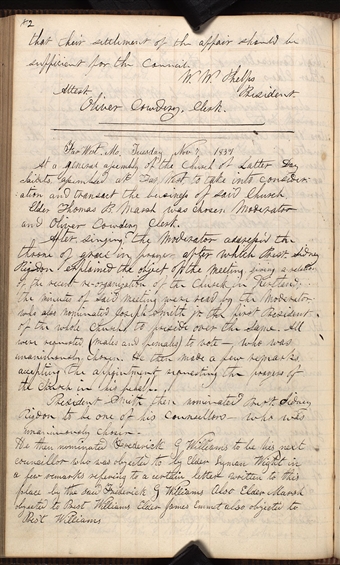 82
that their settlement of the affair should be
sufficient for the Council.
W. W. Phelps
President
Attest
Oliver Cowdery, Clerk.
Far West, Mo, Tuesday Nov. 7, 1837
At a general assembly of the Church of Latter Day
Saints, assembled at Far West to take into consider-
ation and transact the business of said Church
Elder Thomas B. Marsh was chosen Moderator
and Oliver Cowdery Clerk.
After singing, the Moderator addressed the
throne of grace in prayer after which Prest. Sidney
Rigdon explained the object of the meeting, giving a relation
of the recent re-organization of the Church in Kirtland.
the minutes of said meeting were read by the Moderator
who also nominated Joseph Smith jr. the first President
of the whole Church to preside over the same. All
were requested (males and females) to vote — who was
unanimously chosen. He then made a few remarks
accepting the appointment, requesting the prayers of
the Church in his behalf.
President Smith then nominated Prest Sidney
Rigdon to be one of his Counsellors — who was
unanimously chosen.
He then nominated Frederick G Williams to be his next
councillor who was objected to by Elder Lyman Wight in
a few remarks refering to a certain letter written to this
place by the said Frederick G Williams Also Elder Marsh
objected to Prest Williams Elder James Emmet also objected to
Prest Williams